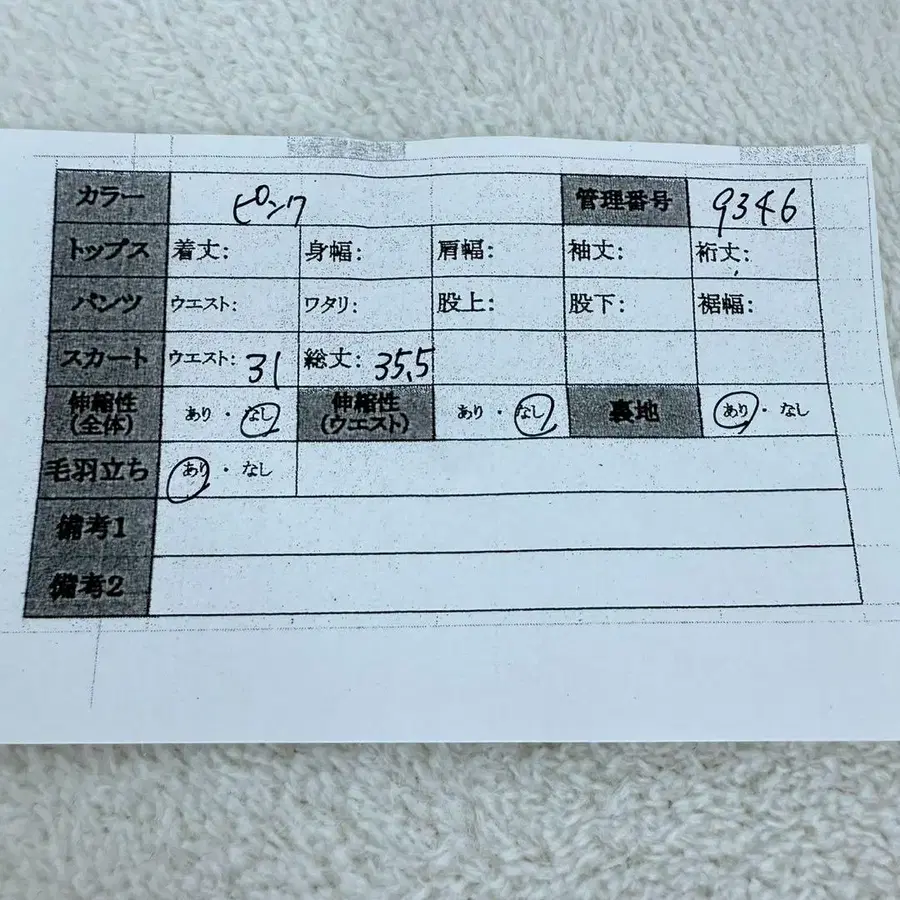 カラー ピンク 管理番号 9346
トップス 着丈: 身幅: 肩幅: 袖丈: 裄丈:
パンツ ウエスト: ワタリ: 股上: 股下: 裾幅:
スカート ウエスト: 31 総丈: 35.5
伸縮性 (全体) あり・なし 伸縮性 (ウエスト) あり・なし 裏地 あり・なし
毛羽立ち あり・なし
備考1
備考2